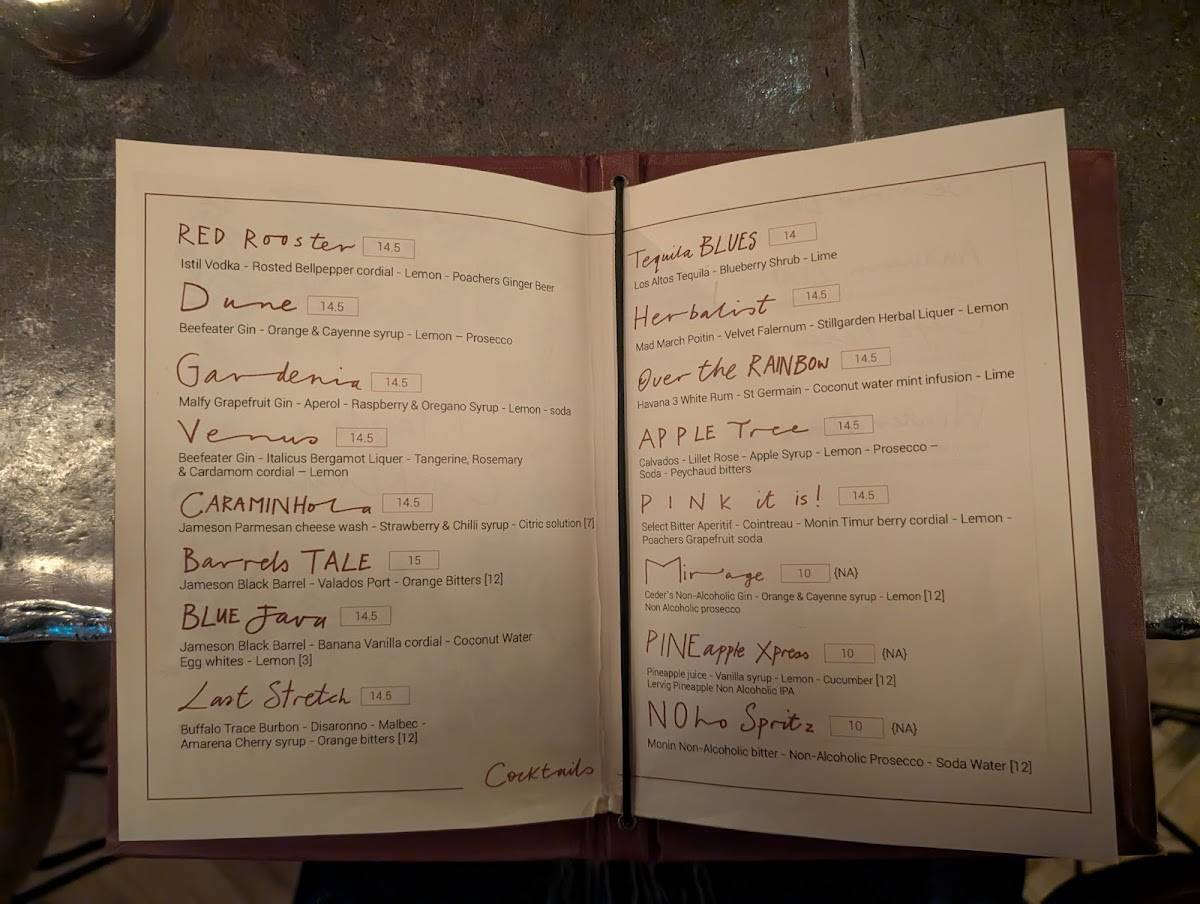 RED Rooster 14.5
Istil Vodka - Rosted Bellpepper cordial - Lemon - Poachers Ginger Beer
Dune 14.5
Beefeater Gin - Orange & Cayenne syrup - Lemon – Prosecco
Gardenia 14.5
Malfy Grapefruit Gin - Aperol - Raspberry & Oregano Syrup - Lemon - soda
Venus 14.5
Beefeater Gin - Italicus Bergamot Liquer - Tangerine, Rosemary
& Cardamom cordial – Lemon
CARAMINHOLa 14.5
Jameson Parmesan cheese wash - Strawberry & Chilli syrup - Citric solution [7]
Barrels TALE 15
Jameson Black Barrel - Valados Port - Orange Bitters [12]
BLUE Java 14.5
Jameson Black Barrel - Banana Vanilla cordial - Coconut Water
Egg whites - Lemon [3]
Last Stretch 14.5
Buffalo Trace Burbon - Disaronno - Malbec -
Amarena Cherry syrup - Orange bitters [12]
Cocktails
Tequila BLUES 14
Los Altos Tequila - Blueberry Shrub - Lime
Herbalist 14.5
Mad March Poitin - Velvet Falernum - Stillgarden Herbal Liquer - Lemon
Over the RAINBOW 14.5
Havana 3 White Rum - St Germain - Coconut water mint infusion - Lime
APPLE Tree 14.5
Calvados - Lillet Rose - Apple Syrup - Lemon - Prosecco –
Soda - Peychaud bitters
PINK it is! 14.5
Select Bitter Aperitif - Cointreau - Monin Timur berry cordial - Lemon -
Poachers Grapefruit soda
Mirage 10 {NA}
Ceder's Non-Alcoholic Gin - Orange & Cayenne syrup - Lemon [12]
Non Alcoholic prosecco
PINEapple Xpress 10 {NA}
Pineapple juice - Vanilla syrup - Lemon - Cucumber [12]
Lervig Pineapple Non Alcoholic IPA
NOho Spritz 10 {NA}
Monin Non-Alcoholic bitter - Non-Alcoholic Prosecco - Soda Water [12]